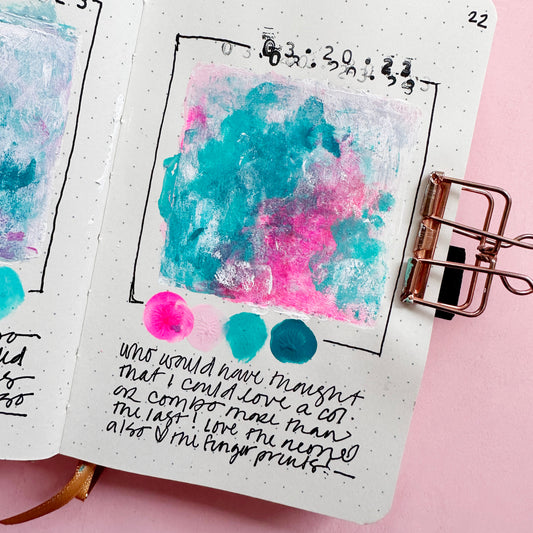 22
03.20.23
who would have thought
that I could love a col-
or combo more than
the last! Love the neon
also ♡ the fingerprints!